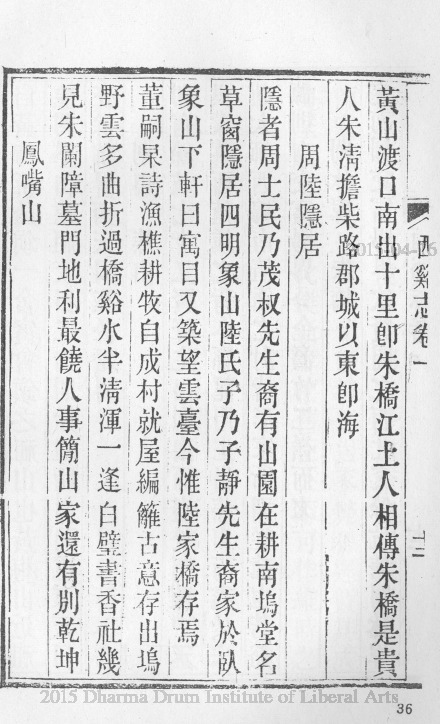 黃山渡口南出十里卽朱橋江上人相傳朱橋是貴
人朱清擔柴路郡城以東卽海
周陸隱居
隱者周士民乃茂叔先生裔有山園在耕南塢堂名
草窗隱居四明象山陸氏子乃子靜先生裔家於臥
象山下軒曰寓目又築望雲臺今惟陸家橋存焉
董嗣杲詩漁樵耕牧自成村就屋編籬古意存出塢
野雲多曲折過橋谿水半清渾一逢白璧書香社幾
見朱闌障墓門地利最饒人事簡山家還有別乾坤
鳳嘴山
西谿志卷一
十二
2015-04-26
2015 Dharma Drum Institute of Liberal Arts
36